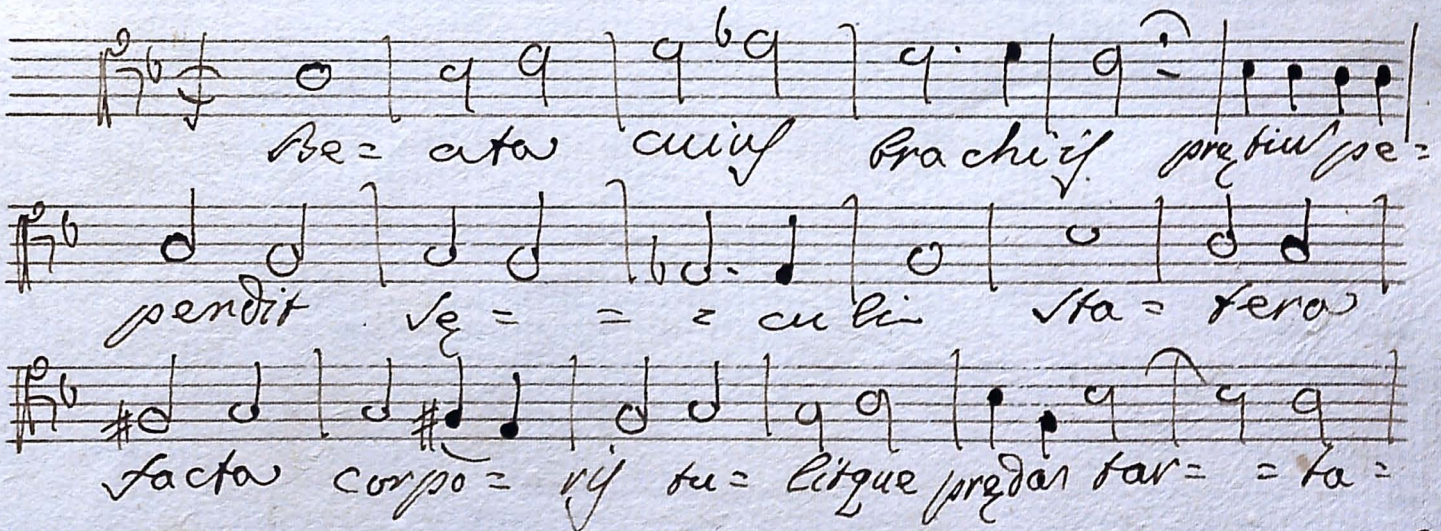 Be= ata cuius brachijs prętiu pe=
pendit sę= = = culi sta= tera
facta corpo= rij tu= litque prędan tar= = ta=